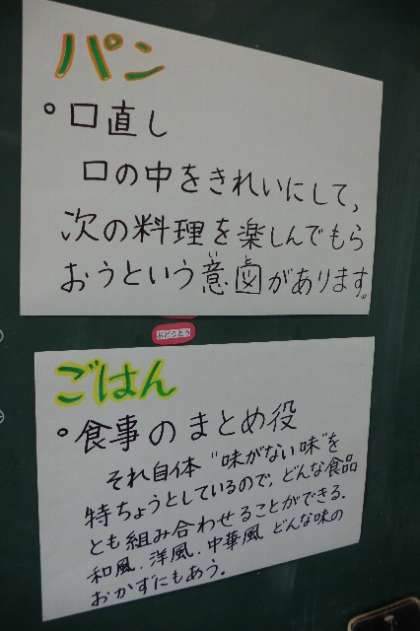 パン
・口直し
口の中をきれいにして、
次の料理を楽しんでもら
おうという意図があります。
ごはん
・食事のまとめ役
それ自体"味がない味"を
特ちょうとしているので、どんな食品
とも組み合わせることができる。
和風、洋風、中華風 どんな味の
おかずにもあう。